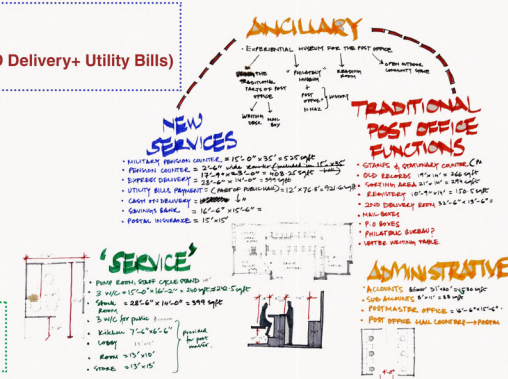 Delivery+ Utility Bills)
ANCILLARY
• EXPERIENTIAL MUSEUM FOR THE POST OFFICE
THE TRADITIONAL PARTS OF POST OFFICE
"PHILATELY MUSEUM + POST OFFICE"
HISTORY
READING ROOM
OPEN OUTDOOR COMMUNITY SPACE
WRITING DESK
MAIL BOX
NEW SERVICES
• MILITARY PENSION COUNTER = 15'-0" x 35' = 525 sqft
• PENSION COUNTER = 2'-6" wide counter (included in 15' x 35'
17'-9" x 23'-0" = 408.25 sqft
• EXPRESS DELIVERY = 28'-6" x 14'-0" = 399 sqft
• UTILITY BILLS PAYMENT = (PART OF PUBLIC HALL) = 12' x 76.8' = 921.6 sqft
• CASH ON DELIVERY =
• SAVINGS BANK = 16'-6" x 15'-6" =
• POSTAL INSURANCE = 15' x 15'
TRADITIONAL POST OFFICE FUNCTIONS
• STAMPS & STATIONARY COUNTER (PA
• OLD RECORDS 19' x 14' = 266 sqft
• SORTING AREA 21' x 14' = 294 sqft
• REGISTRY 10'-9" x 14' = 150.5 sqft
• 2ND DELIVERY ROOM 32'-6" x 13'-6" =
• MAIL BOXES
• P.O BOXES
• PHILATELIC BUREAU?
• LETTER WRITING TABLE
'SERVICE'
• PUMP ROOM, STAFF CYCLE STAND
• 3 W/C = 15'-0" x 16'-2" =
• Stock ROOM = 28'-6" x 14'-0" = 399 sqft
• 3 W/C for public
• Kitchen 7'-6" x 6'-6"
• LOBBY
• ROOM = 13' x 10'
• STORE = 13' x 13'
provided for post master.
ADMINISTRATIVE
• ACCOUNTS
• SUB ACCOUNTS 8' x 11' = 88 sqft
• POSTMASTER OFFICE = 16'-6" x 15'-6"
• POST OFFICE HALL COUNTER → POSTAL